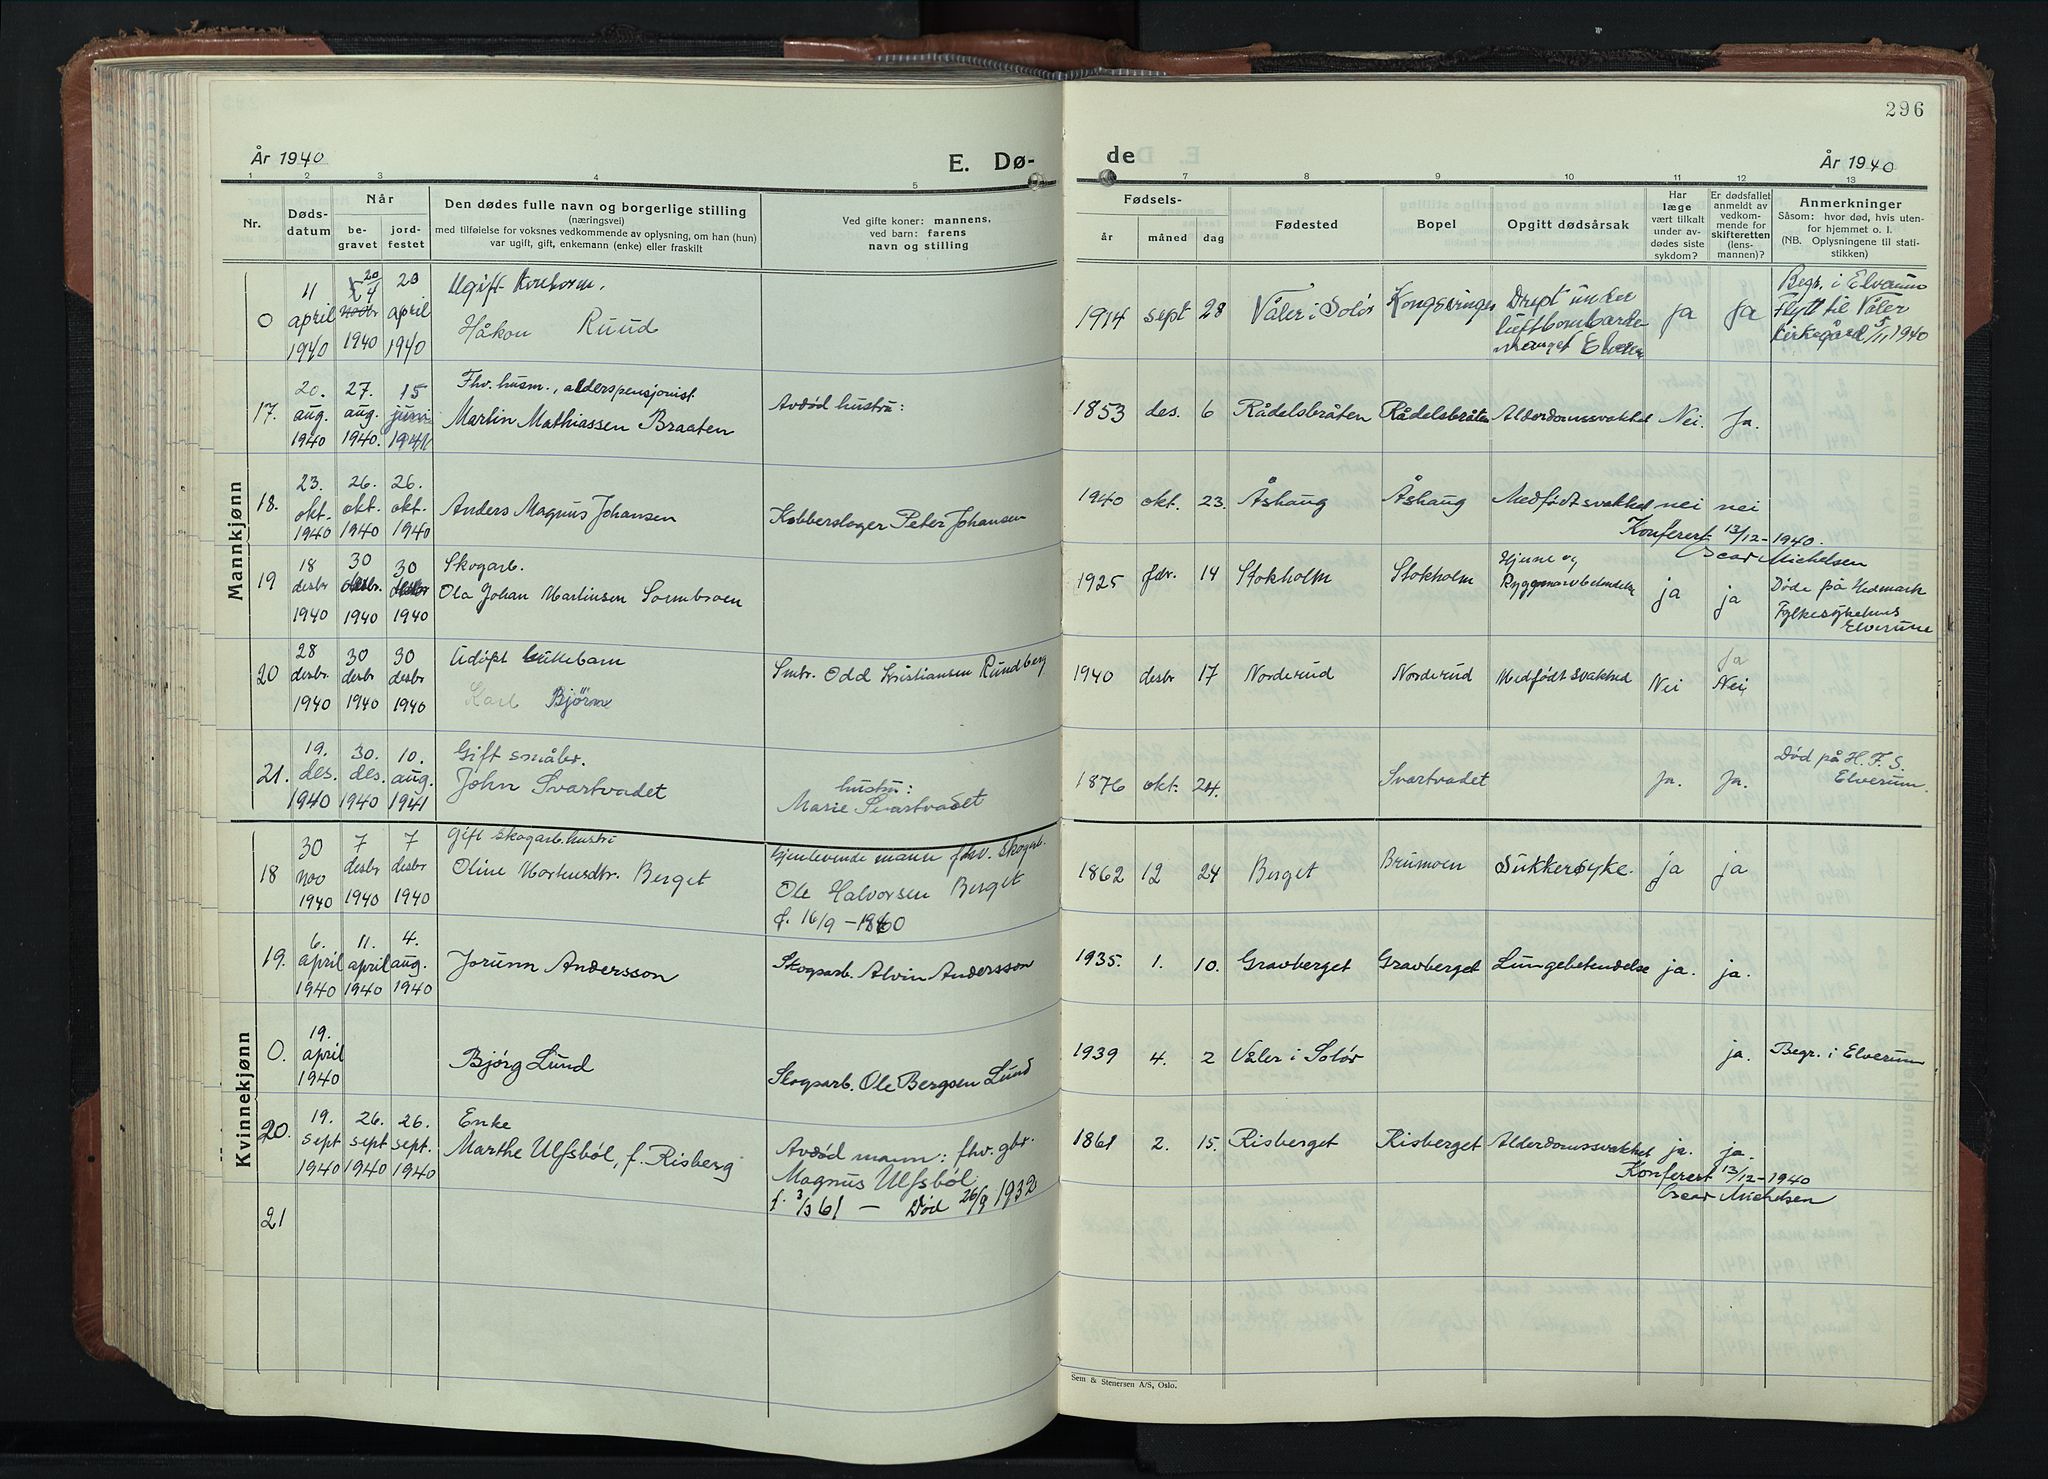 296
År 1940
E. Dø-
de
År 1940
1 2 3 4 5
7 8 9 10 11 12 13
Nr.
Døds-
datum
Når
be-
gravet
jord-
festet
Den dødes fulle navn og borgerlige stilling
(næringsvei)
med tilføielse for voksnes vedkommende av oplysning, om han (hun)
var ugift, gift, enkemann (enke) eller fraskilt
Ved gifte koner: mannens,
ved barn: farens
navn og stilling
Fødsels-
år måned dag
Fødested
Bopel
Opgitt dødsårsak
Har
læge
vært tilkalt
under av-
dødes siste
sykdom?
Er dødsfallet
anmeldt av
vedkom-
mende for
skifteretten
(lens-
mannen)?
Anmerkninger
Såsom: hvor død, hvis uten-
for hjemmet o. l.
(NB. Oplysningene til stati-
stikken)
Mannkjønn
0
11
april
1940
20/4
1940
20
april
1940
Ugift
Håkon Ruud
1914 sept 28 Våler i Solør Kongsvinger
Drept under
luftbombarde-
manget
ja Ja
Begr. i Elverum
Flytt til Våler
kirkegård 5/11 1940
17.
20.
aug.
1940
27.
aug.
1940.
15
juni
1941
Fhv. husm., alderspensjonist
Martin Mathiassen Braaten
Avdød hustru:
1853 des. 6 Rådelsbråten Rådelsbråten Alderdomssvakhet Nei. Ja.
18.
23.
okt.
1940
26.
okt.
1940
26.
okt.
1940
Anders Magnus Johansen
Kobberslager Peter Johansen
1940 okt. 23. Åshaug Åshaug Medfødt svakhet nei nei
Konferert 13/12-1940.
Oscar Michelsen
19
18
desbr
1940
30
desbr.
1940
30
desbr
1940
Skogarb.
Ola Johan Martinsen
1925 14 Stokholm Stokholm
Hjerne og
ja ja
Døde på Hedmark
Fylkessykehus
Elverum
20
28
desbr.
1940
30
desbr
1940
30
desbr
1940
Udøpt
Karl Bjørne
Smbr. Odd Kristiansen Rundberg
1940 desbr 17 Norderud Norderud Medfødt svakhed Nei
Ja
Nei
21.
19.
des.
1940
30.
des.
1940
10.
aug.
1941
Gift småbr.
John Svartvadet
hustru:
Marie Svartvadet
1876 okt. 24. Svartvadet Ja. Ja.
Død på H. F. S.
Elverum.
Kvinnekjønn
18
30
nov
1940
7
desbr
1940
7
desbr
1940
Gift skogarb.hustru
Oline Berget
Gjenlevende mann fhv. skogarb.
Ole Halvorsen Berget
f. 16/9 - 1860
1862 12 24 Berget Brumoen Sukkersyke. ja ja
19.
6.
april
1940
11.
april
1940
4.
aug.
1940
Jorunn Andersson
Skogsarb. Alvin Andersson
1935. 1. 10. Gravberget Gravberget Lungebetendelse ja. ja.
0.
19.
april
1940
Bjørg Lund
Skogsarb. Ole Bergsen Lund
1939 4. 2 Våler i Solør ja. Begr. i Elverum
20.
19.
sept
1940
26.
sept
1940
26.
sept.
1940
Enke
Marthe Ulfsbøl, f. Risberg
Avdød mann: fhv. gbr.
Magnus Ulfsbøl
f. 3/3 61 - Død 26/9 1932
1861 2. 15. Risberget Risberget Alderdomssvakhet ja. ja.
Konferert 13/12-1940
Oscar Michelsen
21
Sem & Stenersen A/S, Oslo.